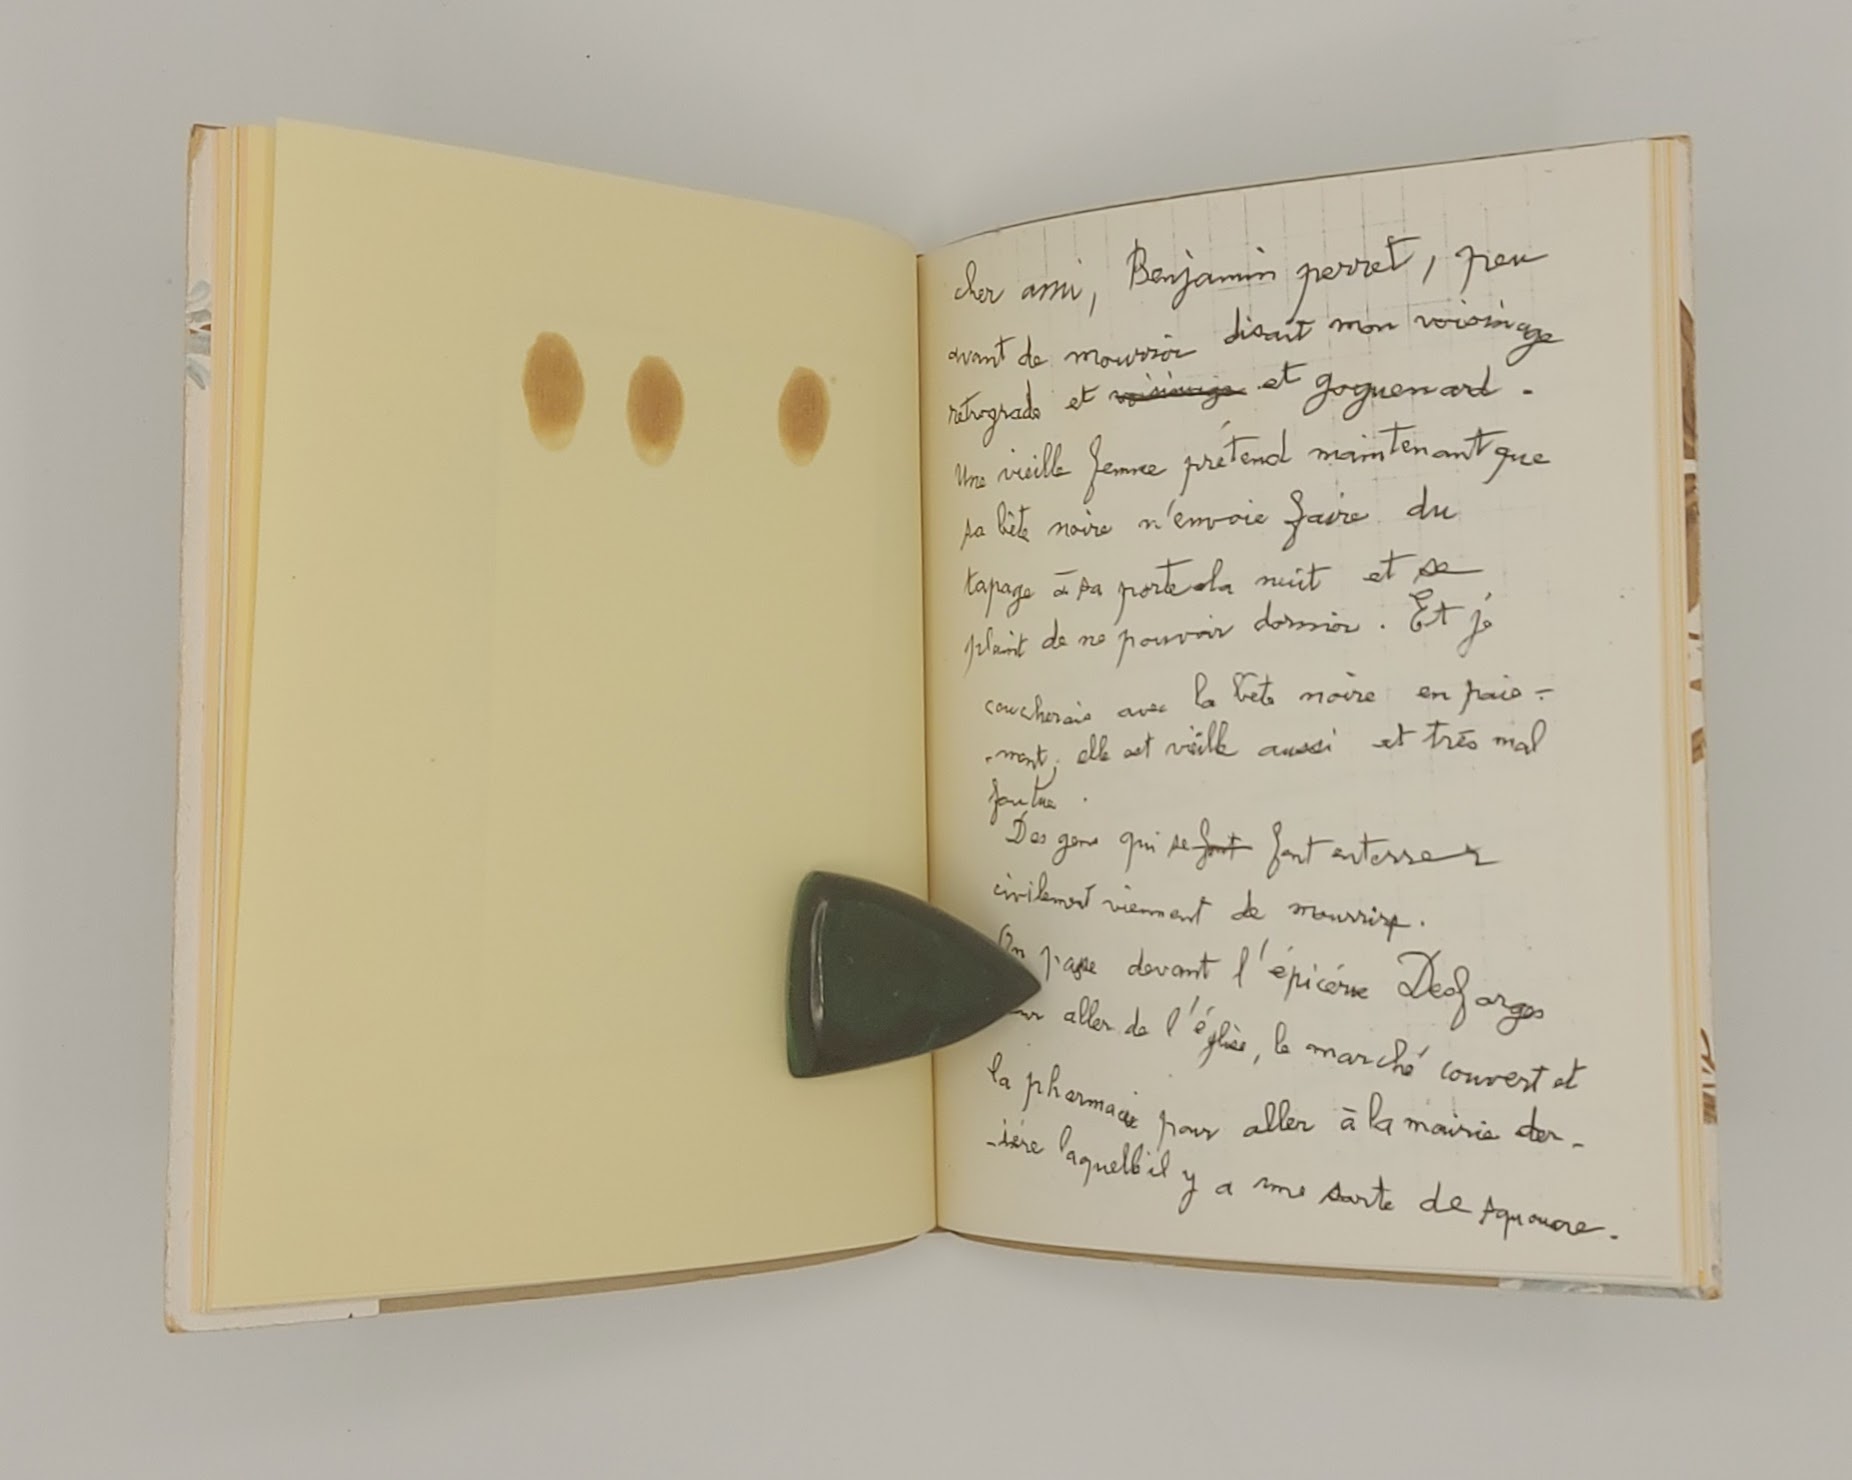 cher ami, Benjamin perret, peu
avant de mourrir disait mon voisinage
rétrograde et voisinage et goguenard.
Une vieille femme prétend maintenant que
sa bête noire m'envoie faire du
tapage à sa porte la nuit et se
plaint de ne pouvoir dormir. Et je
coucherais avec la bête noire en paie-
-ment, elle est vieille aussi et très mal
foutue.
Des gens qui se font font enterrer
civilement viennent de mourrir.
On passe devant l'épicerie Desforges
aller de l'église, le marché couvert et
la pharmacie pour aller à la mairie der-
-ière laquelle il y a une sorte de squouare.